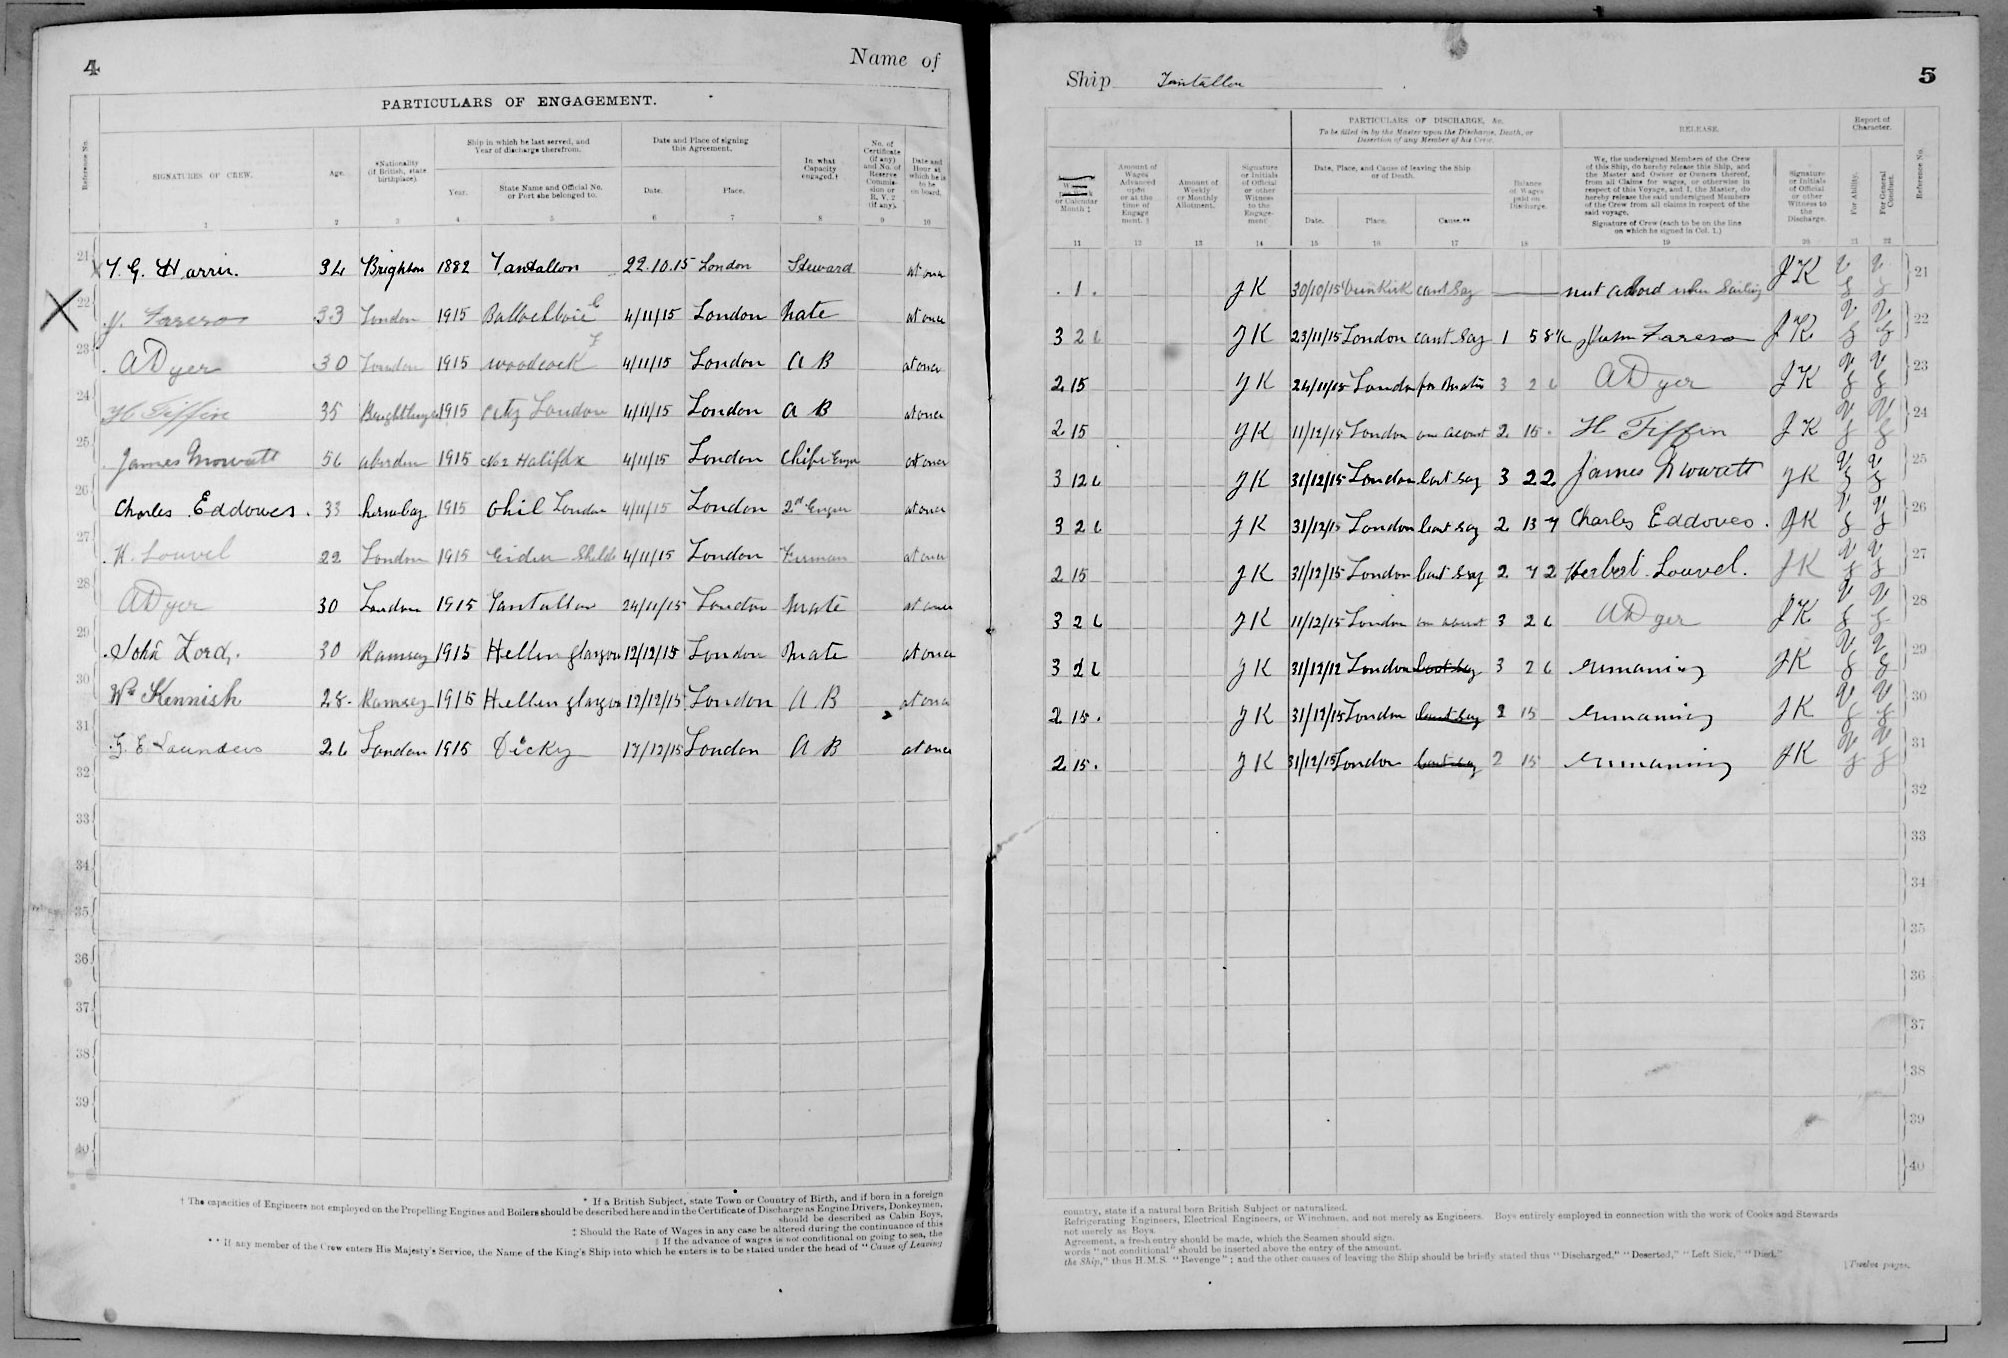 4
Name of
PARTICULARS OF ENGAGEMENT.
Reference No.
SIGNATURES OF CREW.
Age.
*Nationality (if British, state birthplace).
Ship in which he last served, and Year of discharge therefrom.
Year.
State Name and Official No. or Port she belonged to.
Date and Place of signing this Agreement.
Date.
Place.
In what Capacity engaged.†
No. of Certificate (if any) and No. of Reserve Commission or R. V. 2 (if any).
Date and Hour at which he is to be on board.
1 2 3 4 5 6 7 8 9 10
21 T. G. Harris. 34 Brighton 1882 Tantallon 22.10.15 London Steward at once
22 J. Fareros 33 London 1915 4/11/15 London Mate at once
23 A Dyer 30 London 1915 Woodcock 4/11/15 London A B at once
24 H Tiffin 35 1915 City London 4/11/15 London A B at once
25 James Mowatt 56 Aberdeen 1915 No 2 Halifax 4/11/15 London Chife Engr at once
26 Charles Eddowes. 33 1915 London 4/11/15 London 2nd Enger at once
27 H. Louvel 22 London 1915 Eider Shelds 4/11/15 London Firman at once
28 A Dyer 30 London 1915 Tantallon 24/11/15 London Mate at once
29 John Lord. 30 Ramsey 1915 Hellen glasgow 12/12/15 London Mate at once
30 Wm Kennish 28. Ramsey 1915 Hellen glasgow 12/12/15 London A B at once
31 G E Launders 26 London 1915 Dicky 17/12/15 London A B at once
32
33
34
35
36
37
38
39
40
* If a British Subject, state Town or Country of Birth, and if born in a foreign
† The capacities of Engineers not employed on the Propelling Engines and Boilers should be described here and in the Certificate of Discharge as Engine Drivers, Donkeymen,
should be described as Cabin Boys,
‡ Should the Rate of Wages in any case be altered during the continuance of this
‖ If the advance of wages is not conditional on going to sea, the
** If any member of the Crew enters His Majesty's Service, the Name of the King's Ship into which he enters is to be stated under the head of "Cause of Leaving
Ship Tantallon
5
PARTICULARS OF DISCHARGE, &c.
To be filled in by the Master upon the Discharge, Death, or Desertion of any Member of his Crew.
RELEASE.
Report of Character.
or Calendar Month ‡
Amount of Wages Advanced upon or at the time of Engagement. ‖
Amount of Weekly or Monthly Allotment.
Signature or Initials of Official or other Witness to the Engagement
Date, Place, and Cause of leaving the Ship or of Death.
Date.
Place.
Cause.**
Balance of Wages paid on Discharge.
We, the undersigned Members of the Crew of this Ship, do hereby release this Ship, and the Master and Owner or Owners thereof, from all Claims for wages, or otherwise in respect of this Voyage, and I, the Master, do hereby release the said undersigned Members of the Crew from all claims in respect of the said voyage.
Signature of Crew (each to be on the line on which he signed in Col. 1.)
Signature or Initials of Official or other Witness to the Discharge.
For Ability.
For General Conduct.
Reference No.
11 12 13 14 15 16 17 18 19 20 21 22
. 1 . J K 30/10/15 Dunkirk cant say not aboard when Sailing J K V g V g 21
3 2 6 J K 23/11/15 London cant say 1 5 8½ John Fareso J K V g V g 22
2 15 J K 24/11/15 London for Mate 3 2 6 A Dyer J K V g V g 23
2 15 J K 11/12/15 London 2 15 . H Tiffin J K V g V g 24
3 12 6 J K 31/12/15 London cant say 3 22 James Mowatt J K V g V g 25
3 2 6 J K 31/12/15 London cant say 2 13 7 Charles Eddowes. J K V g V g 26
2 15 J K 31/12/15 London cant say 2 7 2 Herbert Louvel. J K V g V g 27
3 2 6 J K 11/12/15 London 3 2 6 A Dyer J K V g V g 28
3 2 6 J K 31/12/12 London cant say 3 2 6 remaning J K V g V g 29
2 15 . J K 31/12/15 London cant say 2 15 remaning J K V g V g 30
2 15 . J K 31/12/15 London cant say 2 15 remaning J K V g V g 31
32
33
34
35
36
37
38
39
40
country, state if a natural born British Subject or naturalised.
Refrigerating Engineers, Electrical Engineers, or Winchmen, and not merely as Engineers. Boys entirely employed in connection with the work of Cooks and Stewards
not merely as Boys.
Agreement, a fresh entry should be made, which the Seamen should sign.
words "not conditional" should be inserted above the entry of the amount.
the Ship," thus H.M.S. "Revenge"; and the other causes of leaving the Ship should be briefly stated thus "Discharged," "Deserted," "Left Sick," "Died."
[Twelve pages.